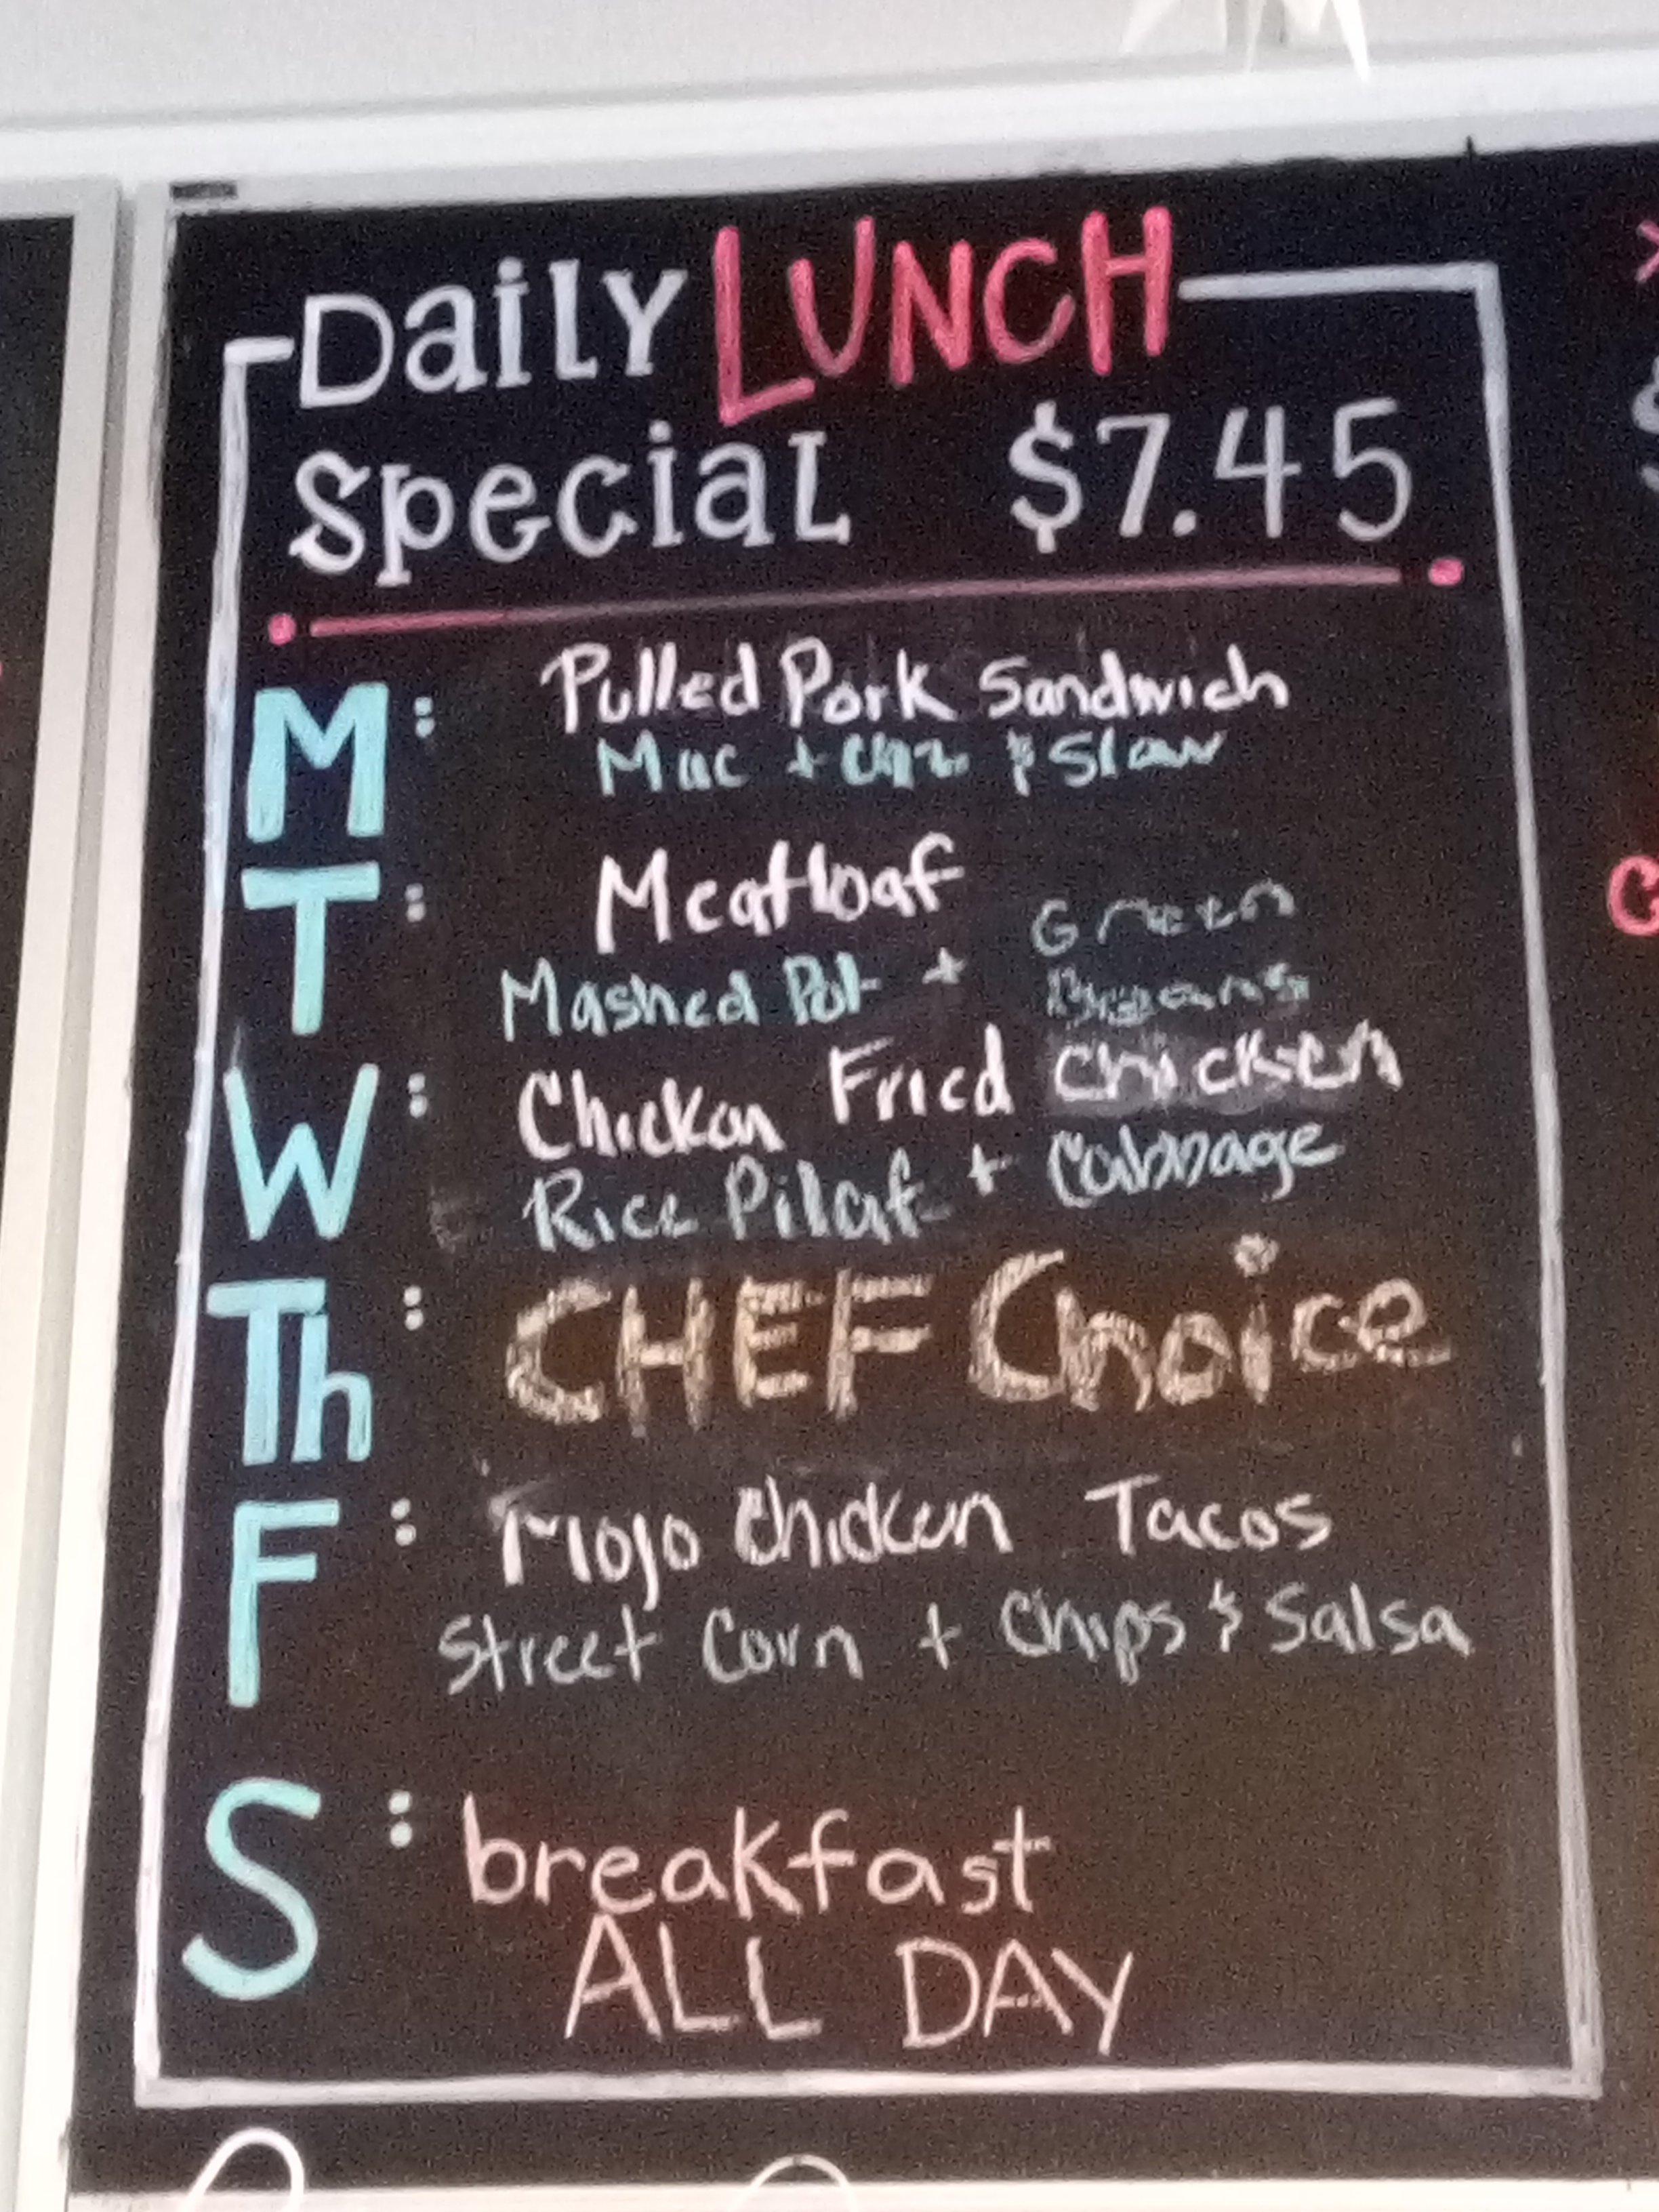 Daily LUNCH
Special $7.45
M: Pulled Pork Sandwich
Mac + Chz & Slaw
T: Meatloaf
Mashed Pot + Green Beans
W: Chicken Fried Chicken
Rice Pilaf + Cabbage
Th: CHEF Choice
F: Mojo Chicken Tacos
Street Corn + Chips & Salsa
S: breakfast
ALL DAY